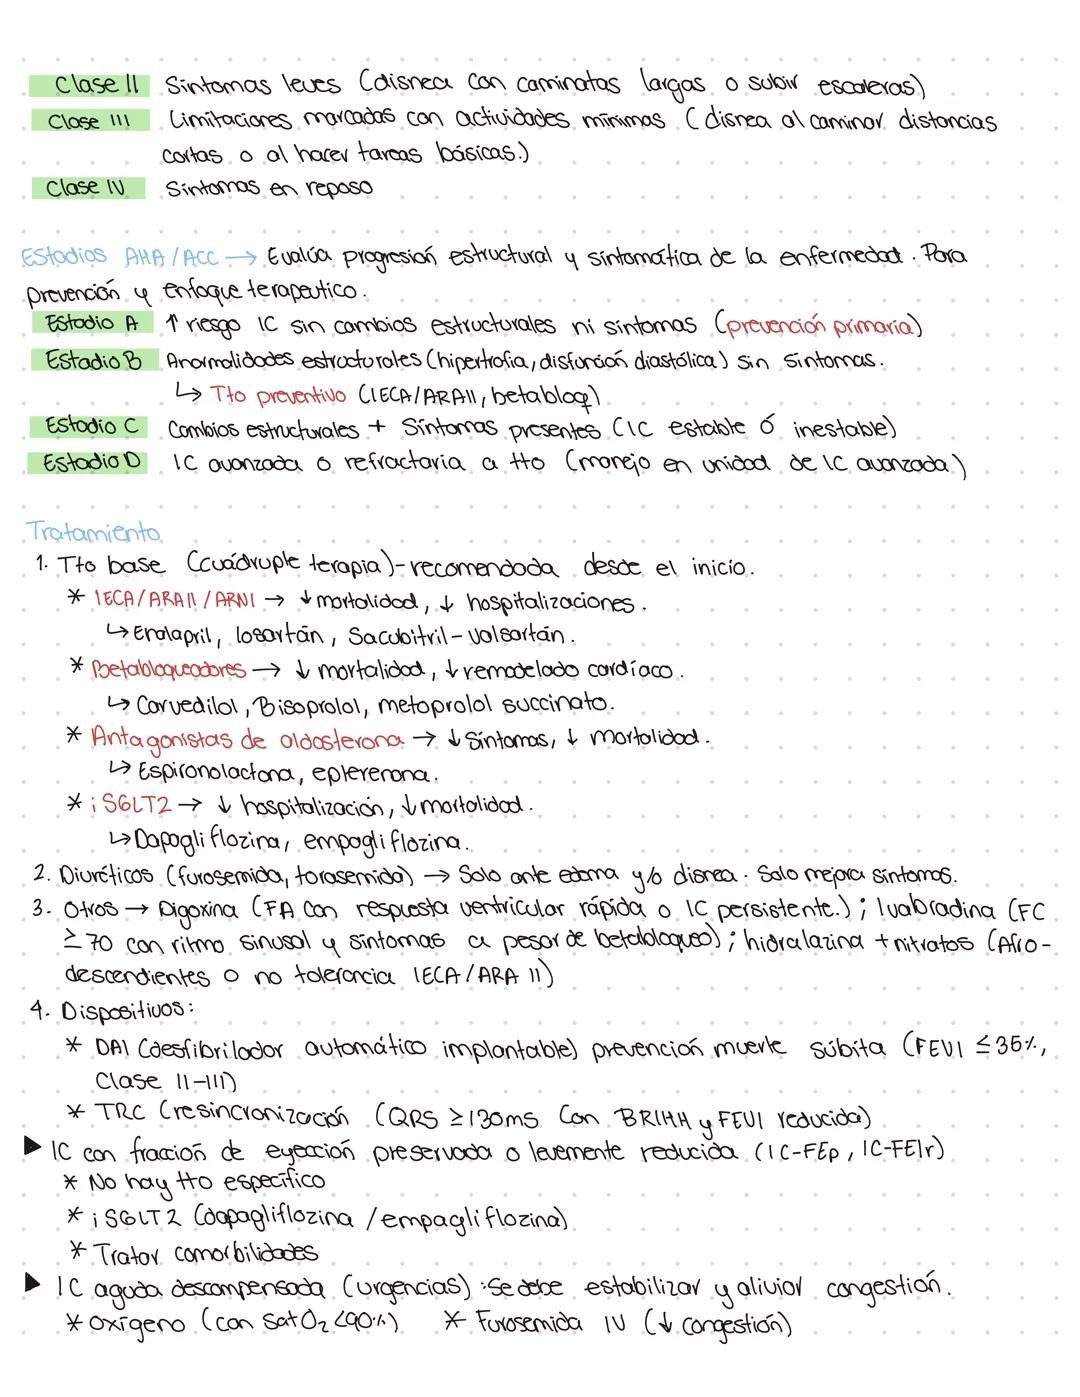 Clase II Síntomas leves (disnea con caminatas largas o subir escaleras)
Clase III Limitaciones marcadas con actividades mínimas (disnea al caminar distancias
cortas o al hacer tareas básicas.)
Clase IV Síntomas en reposo
Estadios AHA/ACC → Evalúa progresión estructural y sintomática de la enfermedad. Para
prevención y enfoque terapeutico.
Estadio A ↑ riesgo IC sin cambios estructurales ni síntomas (prevención primaria)
Estadio B Anormalidades estructurales (hipertrofia, disfunción diastólica) sin síntomas.
↳ Tto preventivo (IECA/ARAII, betabloq)
Estadio C Cambios estructurales + Síntomas presentes (IC estable ó inestable)
Estadio D IC avanzada o refractaria a tto (manejo en unidad de IC avanzada)
Tratamiento
1. Tto base (cuádruple terapia) - recomendada desde el inicio.
* IECA/ARAII/ARNI → ↓ mortalidad, ↓ hospitalizaciones.
↳ Enalapril, losartán, Sacubitril-valsartán.
* Betabloqueadores → ↓ mortalidad, ↓ remodelado cardíaco.
↳ Carvedilol, Bisoprolol, metoprolol succinato.
* Antagonistas de aldosterona → ↓ Síntomas, ↓ mortalidad.
↳ Espironolactona, eplerenona.
* iSGLT2 → ↓ hospitalización, ↓ mortalidad.
↳ Dapagliflozina, empagliflozina.
2. Diuréticos (furosemida, torasemida) → Solo ante edema y/o disnea. Solo mejora síntomas.
3. Otros → Digoxina (FA con respuesta ventricular rápida o IC persistente.); Ivabradina (FC
≥70 con ritmo sinusal y síntomas a pesar de betabloqueo); hidralazina + nitratos (Afro-
descendientes o no tolerancia IECA/ARA II)
4. Dispositivos:
* DAI (desfibrilador automático implantable) prevención muerte súbita (FEVI ≤35%,
Clase II-III)
* TRC (resincronización (QRS ≥130ms con BRIHH y FEVI reducida)
▶ IC con fracción de eyección preservada o levemente reducida (IC-FEp, IC-FElr)
* No hay tto específico
* iSGLT2 (dapagliflozina /empagliflozina)
* Tratar comorbilidades
▶ IC aguda descompensada (urgencias): Se debe estabilizar y aliviar congestión.
* Oxígeno (con Sat O₂ <90%) * Furosemida IV (↓ congestión)